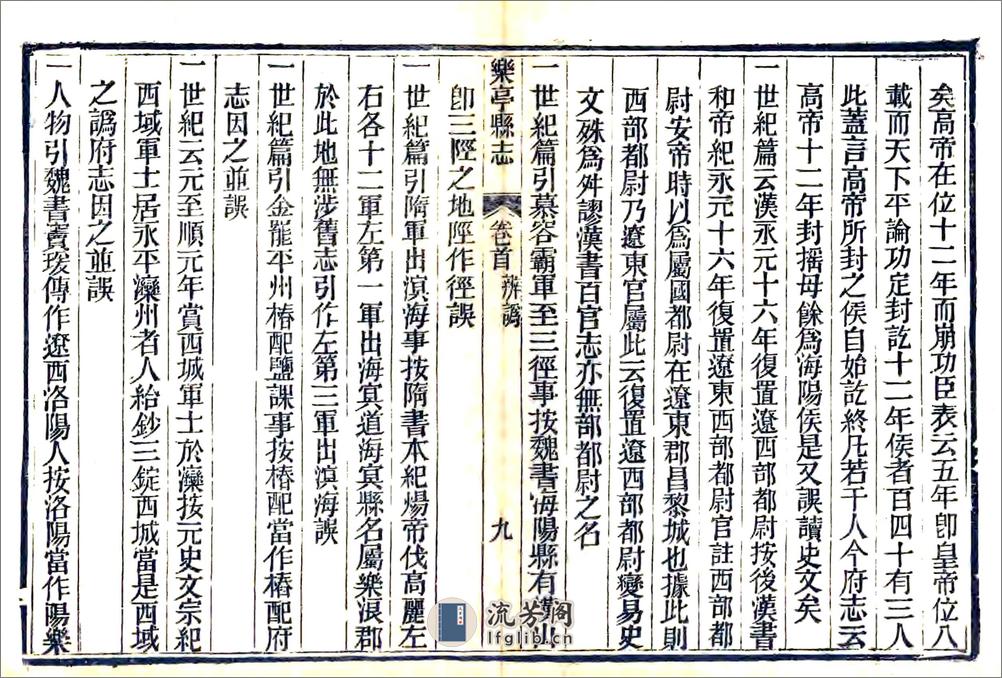 矣高帝在位十二年而崩功臣表云五年卽皇帝位八
載而天下平論功定封訖十二年侯者百四十有三人
此蓋言高帝所封之侯自始訖終凡若干人今府志云
高帝十二年封搖毋餘爲海陽侯是又誤讀史文矣
一世紀篇云漢永元十六年復置遼西部都尉按後漢書
和帝紀永元十六年復置遼東西部都尉官註西部都
尉安帝時以爲屬國都尉在遼東郡昌黎城也據此則
西部都尉乃遼東官屬此云復置遼西部都尉變易史
文殊爲舛謬漢書百官志亦無部都尉之名
一世紀篇引慕容霸軍至三徑事按魏書海陽縣有橫山
樂亭縣志 卷首 辨譌 九
卽三陘之地陘作徑誤
一世紀篇引隋軍出溟海事按隋書本紀煬帝伐高麗左
右各十二軍左第一軍出海冥道海冥縣名屬樂浪郡
於此地無涉舊志引作左第三軍出溟海誤
一世紀篇引金罷平州椿配鹽課事按椿配當作樁配府
志因之並誤
一世紀云元至順元年賞西城軍士於灤按元史文宗紀
西域軍士居永平灤州者人給鈔三錠西城當是西域
之譌府志因之並誤
一人物引魏書竇瑗傳作遼西洛陽人按洛陽當作陽樂
流芳阁
lfglib.cn